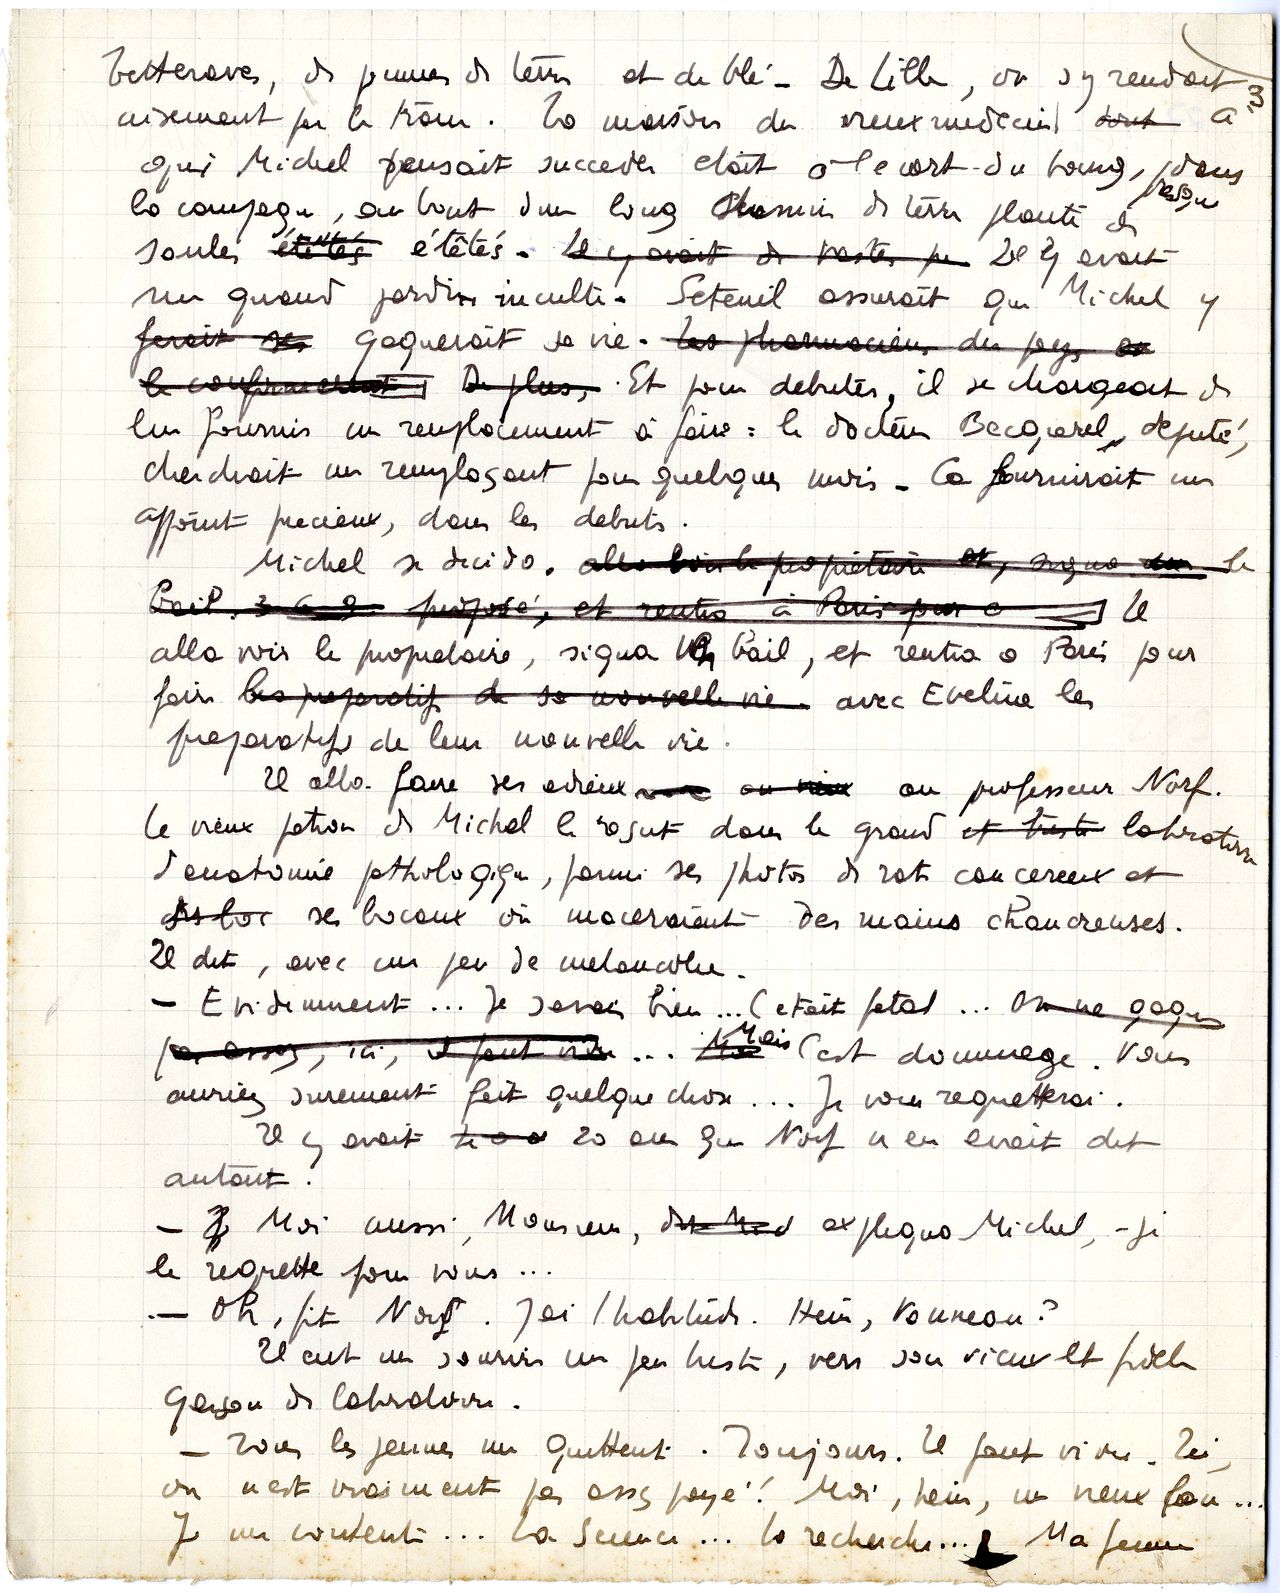 3
betteraves, de pommes de terre et de blé - De Lille, on s'y rendait
aisement par le tram. La maison du vieux medecin dont à
qui Michel pensait succeder etait à l'ecart du bourg, presque dans
la campagne, au bout d'un long chemin de terre planté de
saules étêtés étêtés. Il y avait de vastes Il y avait
un grand jardin inculte. Seteuil assurait que Michel y
ferait ses gagnerait sa vie. Les pharmaciens du pays
le confirmèrent De plus, Et pour debuter, il se chargeait de
lui fournir un remplacement à faire : le docteur Becquerel, député,
cherchait un remplaçant pour quelques mois - Ca fournirait un
appoint precieux, dans les debuts.
Michel se decida. alla voir le propriétaire et, signa le
Bail 3 6 9 proposé, et rentra à Paris pour Il
alla voir le proprietaire, signa un bail, et rentra a Paris pour
faire les preparatifs de sa nouvelle vie. avec Eveline les
preparatifs de leur nouvelle vie.
Il alla faire ses adieux au vieux au professeur Norf.
Le vieux patron de Michel le reçut dans le grand et triste laboratoire
d'anatomie pathologique, parmi ses photos de rats cancereux et
ses bocaux où maceraient des mains chancreuses.
Il dit, avec un peu de melancolie.
- Evidemment ... Je savais bien ... C'etait fatal ... On ne gagne
pas assez, ici, il faut vivre ... Mais C'est dommage. Vous
auriez surement fait quelque chose ... Je vous regretterai.
Il y avait 20 ans que Norf n'en avait dit
autant.
- Moi aussi, Monsieur, expliqua Michel, - je
le regrette pour vous ...
- Oh, fit Norf. J'ai l'habitude. Hein, Vonneau?
Il eut un sourire un peu triste, vers son vieux et fidèle
garçon de laboratoire.
- Tous les jeunes me quittent. Toujours. Il faut vivre. Ici,
on n'est vraiment pas assez payé! Moi, hein, un vieux fou ...
Je me contente ... La Science ... la recherche ... Ma femme